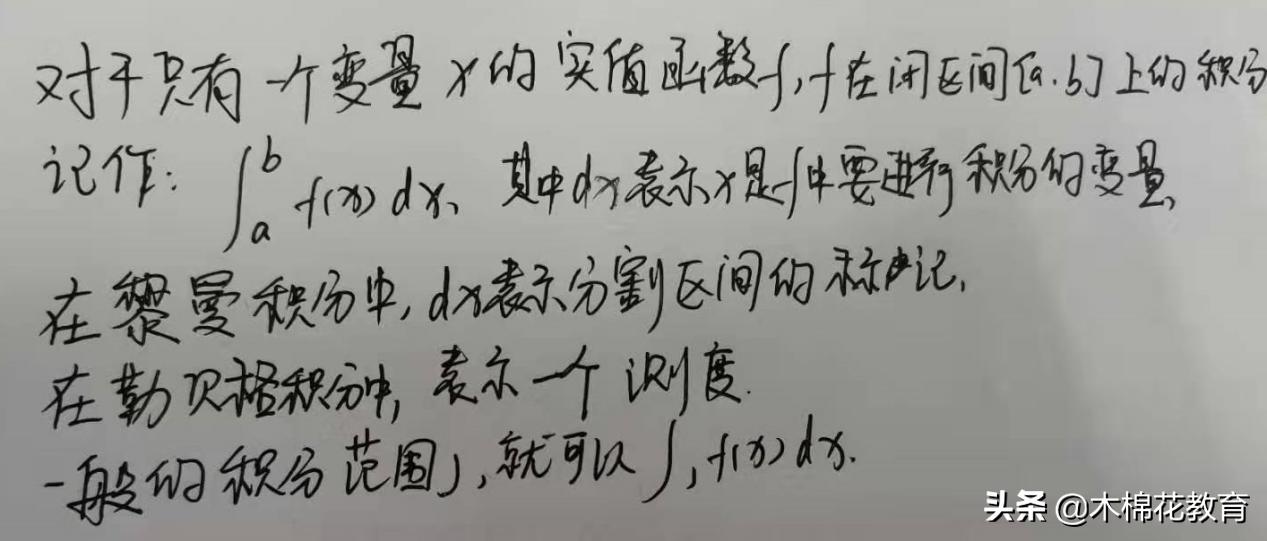 对于只有一个变量x的实值函数f,f在闭区间[a.b]上的积分
记作: ∫_a^b f(x) dx、其中dx表示x是f中要进行积分的变量,
在黎曼积分中,dx表示分割区间的标记,
在勒贝格积分中,表示一个测度.
一般的积分范围J,就可以∫J f(x) dx.
头条 @木棉花教育